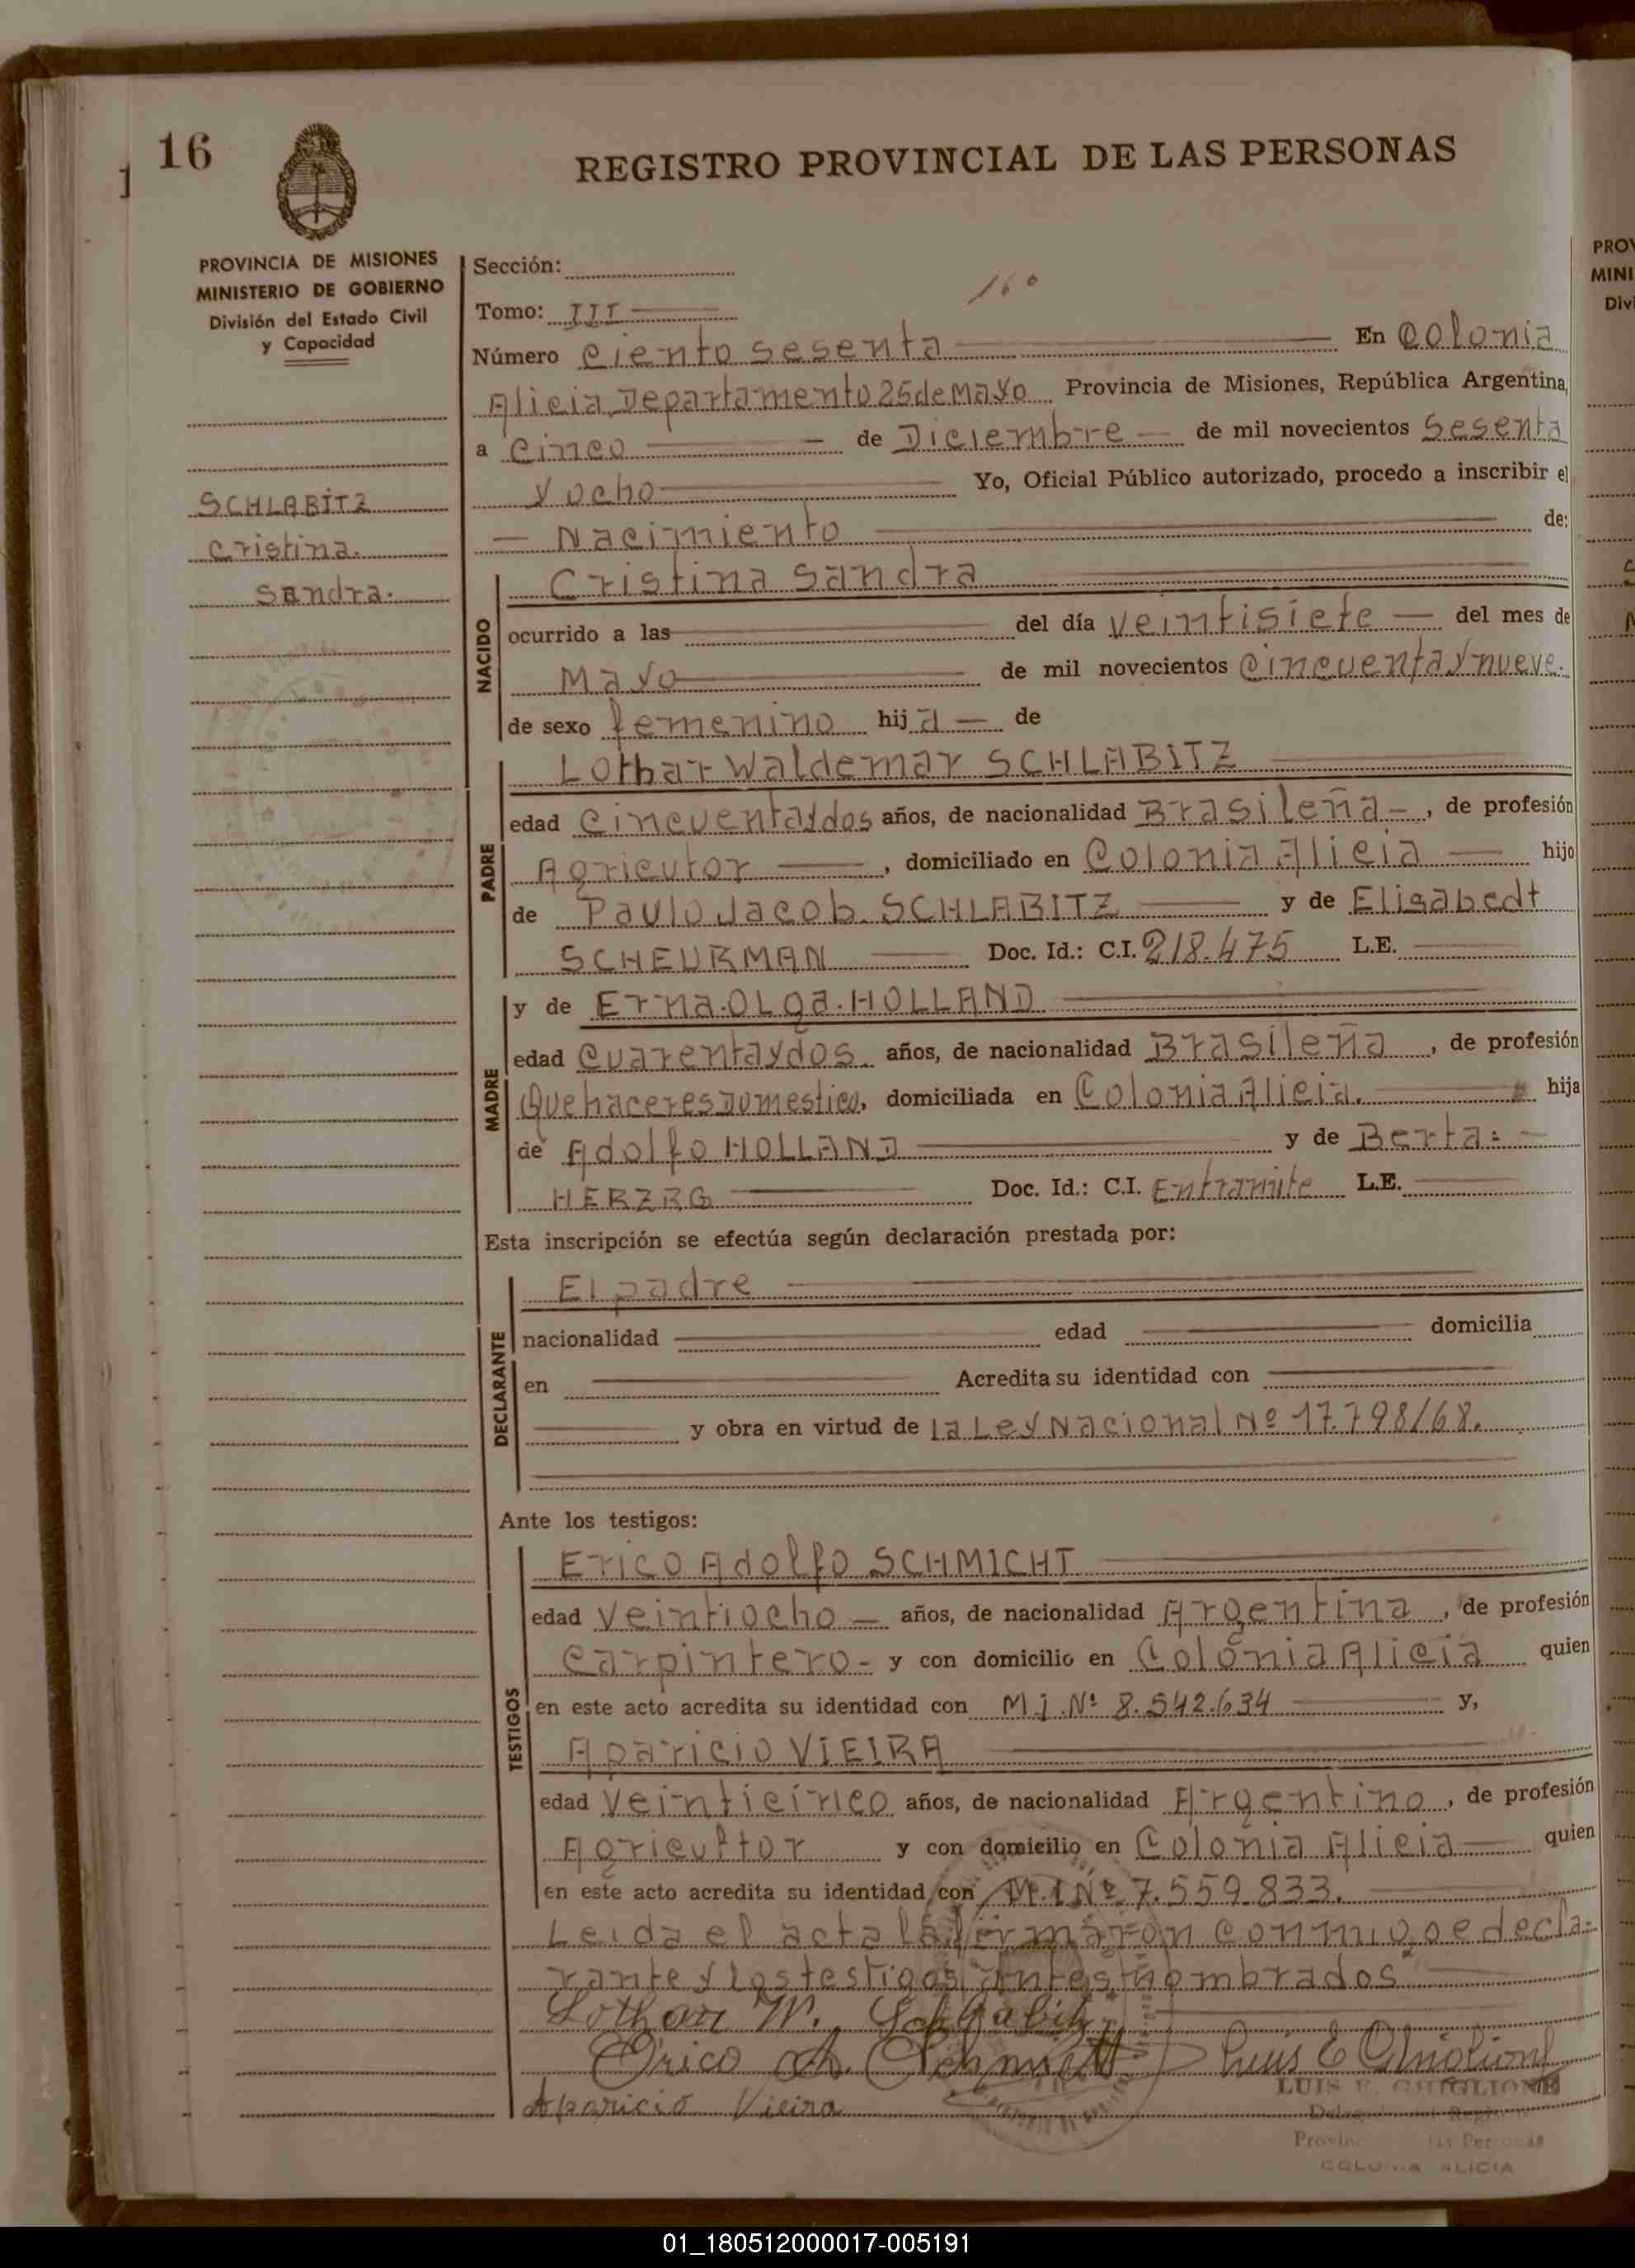 16
REGISTRO PROVINCIAL DE LAS PERSONAS
PROVINCIA DE MISIONES
MINISTERIO DE GOBIERNO
División del Estado Civil
y Capacidad
SCHLABITZ
Cristina.
Sandra.
Sección:
160
Tomo: III
Número Ciento sesenta En Colonia
Alicia, Departamento 25 de Mayo Provincia de Misiones, República Argentina,
a Cinco de Diciembre de mil novecientos Sesenta
y ocho Yo, Oficial Público autorizado, procedo a inscribir el
Nacimiento de:
NACIDO
Cristina Sandra
ocurrido a las del día veintisiete del mes de
Mayo de mil novecientos Cincuenta y nueve.
de sexo femenino hija de
PADRE
Lothar Waldemar SCHLABITZ
edad Cincuenta y dos años, de nacionalidad Brasileña, de profesión
Agricutor, domiciliado en Colonia Alicia hijo
de Paulo Jacob. SCHLABITZ y de Elisabedt
SCHEURMAN Doc. Id.: C.I. 218.475 L.E.
MADRE
y de Erna. OLga. HOLLAND
edad Cuarenta y dos. años, de nacionalidad Brasileña, de profesión
Quehaceres Domestico, domiciliada en Colonia Alicia. hija
de Adolfo HOLLAND y de Berta=
HERZRG Doc. Id.: C.I. Entramite L.E.
Esta inscripción se efectúa según declaración prestada por:
DECLARANTE
El padre
nacionalidad edad domicilia
en Acredita su identidad con
y obra en virtud de la Ley Nacional Nº 17.798/68.
Ante los testigos:
TESTIGOS
Erico Adolfo SCHMICHT
edad Veintiocho años, de nacionalidad Argentina, de profesión
Carpintero - y con domicilio en Colonia Alicia quien
en este acto acredita su identidad con M.I. Nº 8.542.634 y,
Aparicio VIEIRA
edad Veinticinco años, de nacionalidad Argentino, de profesión
Agricultor y con domicilio en Colonia Alicia quien
en este acto acredita su identidad con M.I Nº 7.559.833.
Leida el acta la firmaron conmigo e decla-
rante y los testigos antes nombrados
Lothar W. Schlabitz
Erico A. Schmidt Luis E Ghiglione
Aparicio Vieira
LUIS E. GHIGLIONE
COLONIA ALICIA
PROV
MINI
Div
01_180512000017-005191